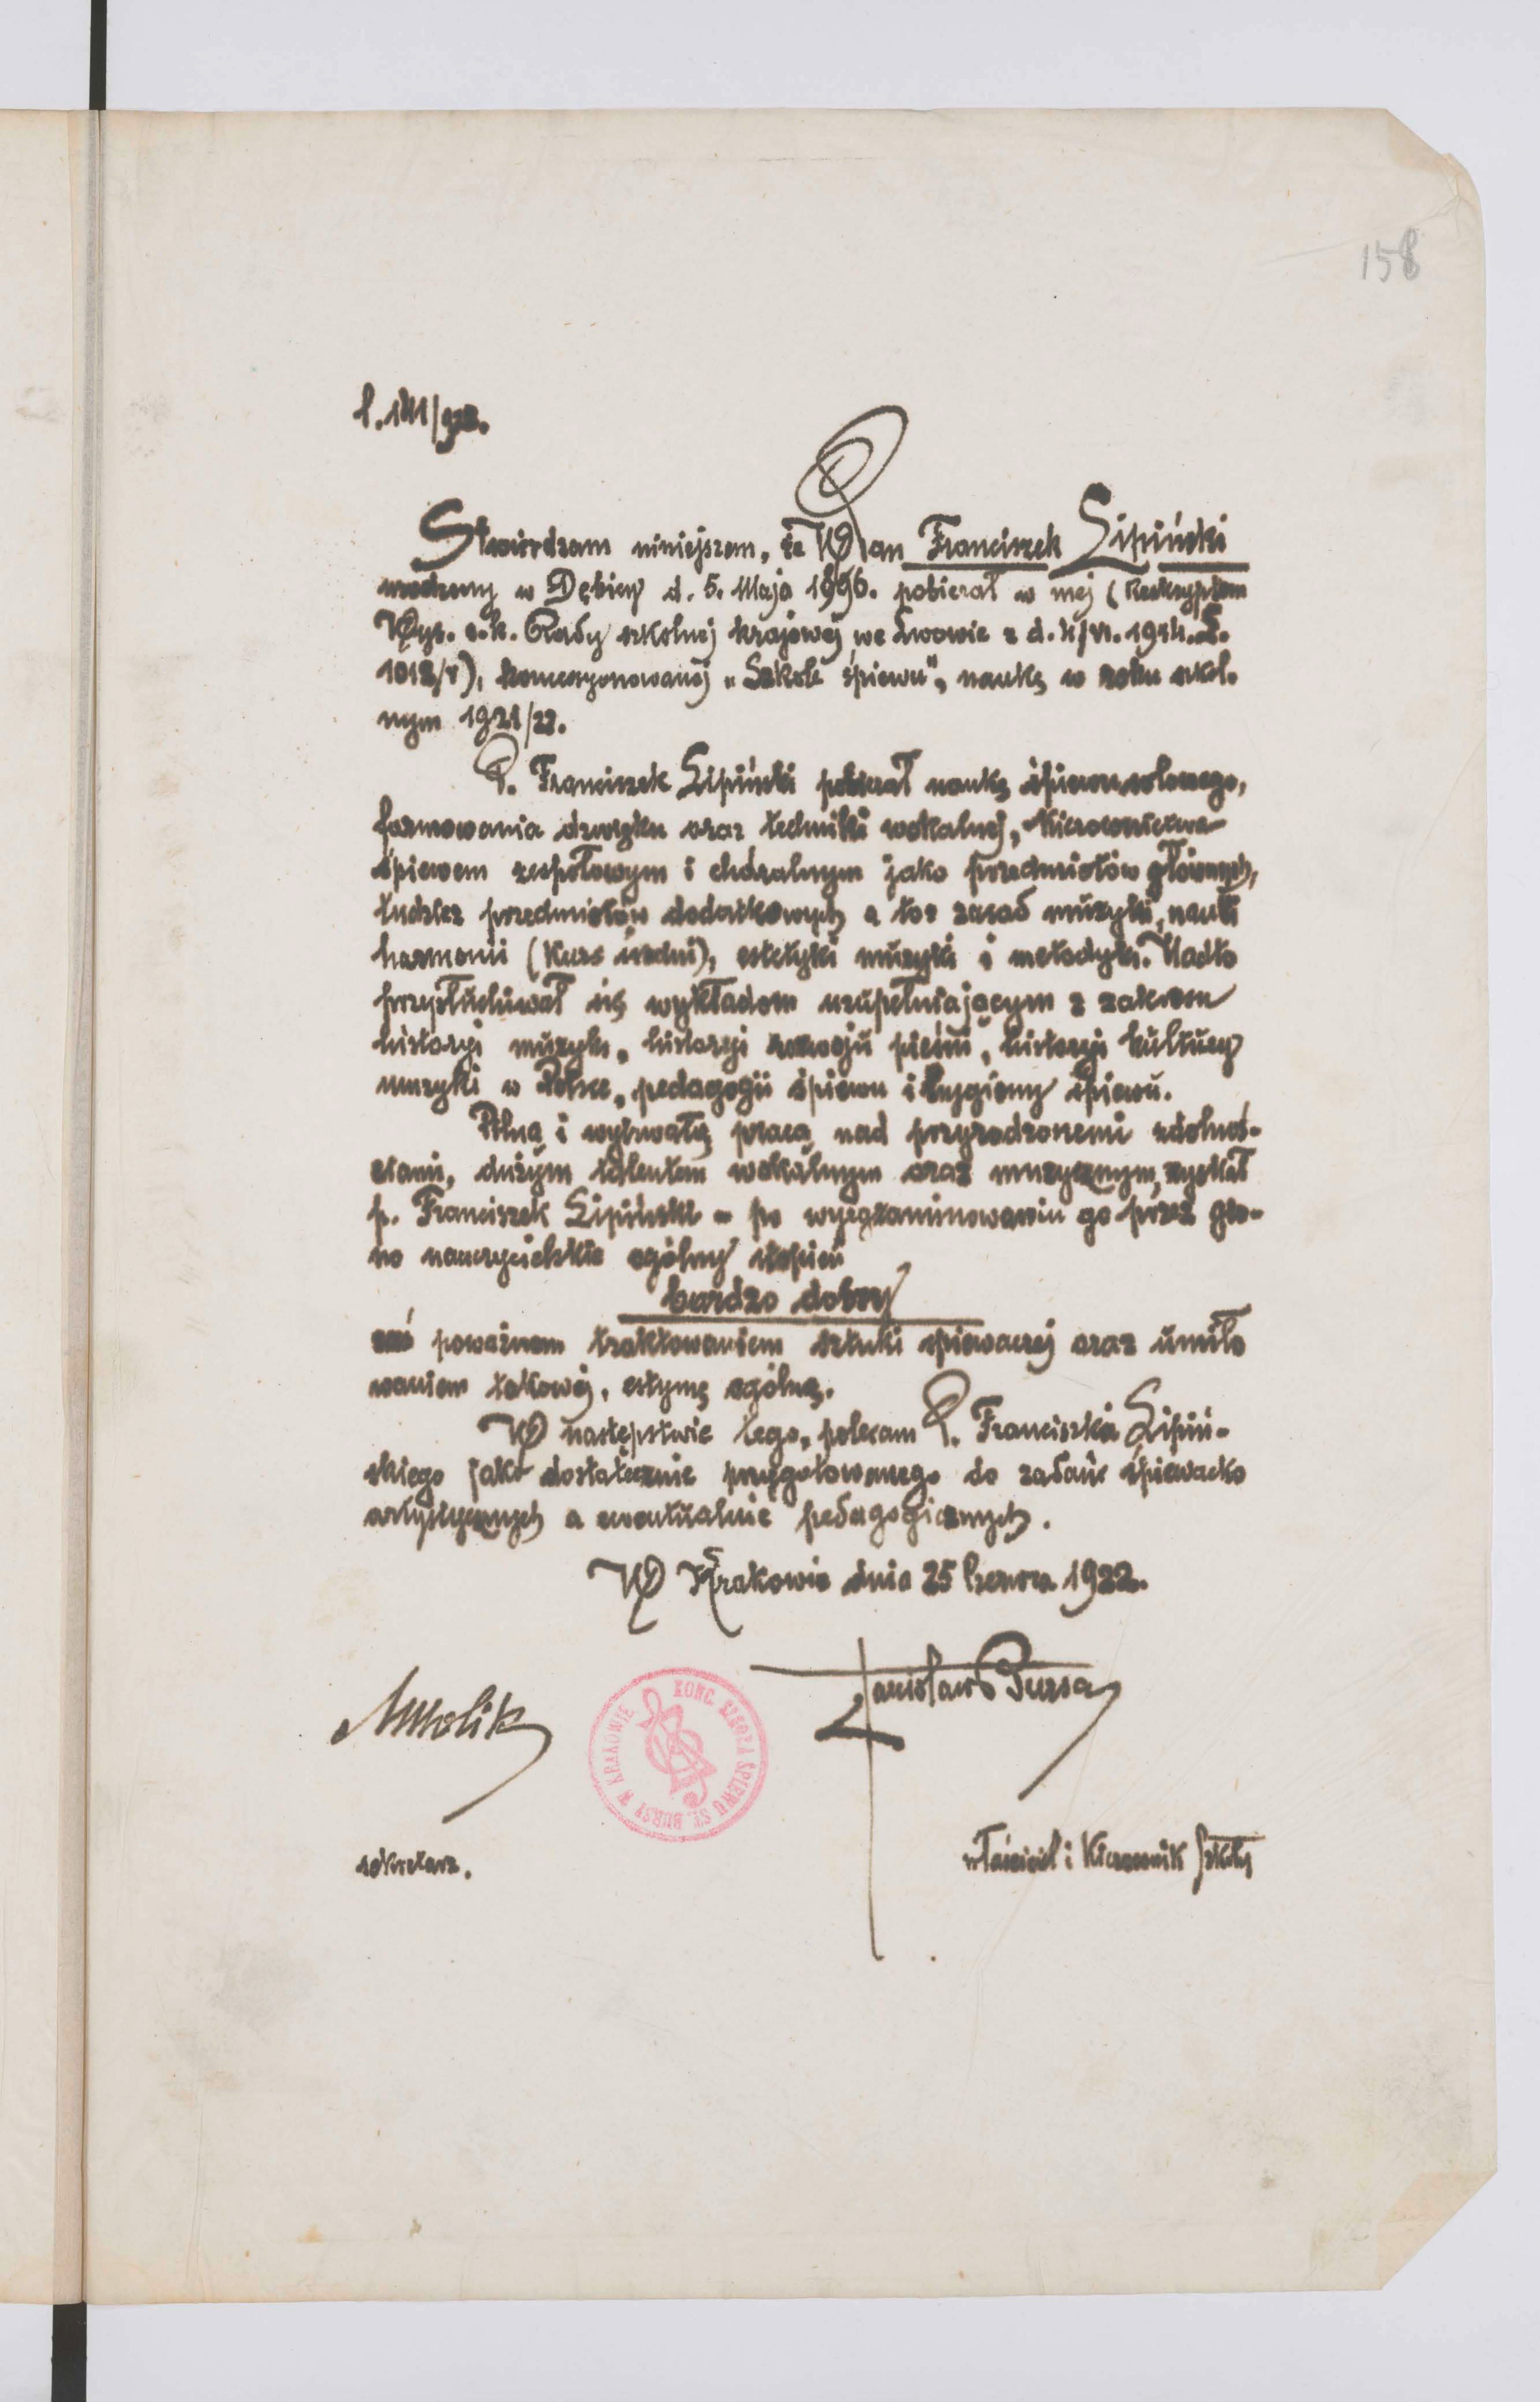 158
l. 141/922.
Stwierdzam niniejszem, że WPan Franciszek Lipiński
urodzony w Dębicy d. 5. Maja 1896. pobierał w mej (Reskryptem
Wys. c.k. Rady szkolnej krajowej we Lwowie z d. 1914. L.
1012/r), koncesyonowanej „Szkole śpiewu", naukę w roku szkol-
nym 1921/22.
P. Franciszek Lipiński pobierał naukę śpiewu solowego,
formowania dzwięku oraz techniki wokalnej, Kierownictwa
śpiewem zespołowym i chóralnym jako przedmiotów głównych,
tudzież przedmiotów dodatkowych a to: zasad muzyki, nauki
harmonii (Kurs średni), estetyki muzyki i metodyki. Nadto
przysłuchiwał się wykładom uzupełniającym z zakresu
historyi muzyki, historyi rozwoju pieśni, historyi kultury
muzyki w Polsce, pedagogii śpiewu i hygieny śpiewu.
Pilną i wytrwałą pracą nad przyrodzonemi zdolnoś-
ciami, dużym talentem wokalnym oraz muzycznym, zyskał
p. Franciszek Lipiński - po wyegzaminowaniu go przez gro-
no nauczycielskie ogólny stopień
bardzo dobry
zaś poważnem traktowaniem sztuki śpiewaczej oraz umiło
waniem takowej, estymę ogólną.
W następstwie tego, polecam P. Franciszka Lipiń-
skiego jako dostatecznie przygotowanego do zadań śpiewacko
artystycznych a ewentualnie pedagogicznych.
W Krakowie dnia 25 Czerwca 1922.
Stanisław Bursa
KONC. SZKOŁA ŚPIEWU ST. BURSY W KRAKOWIE
sekretarz.
właściciel i Kierownik Szkoły